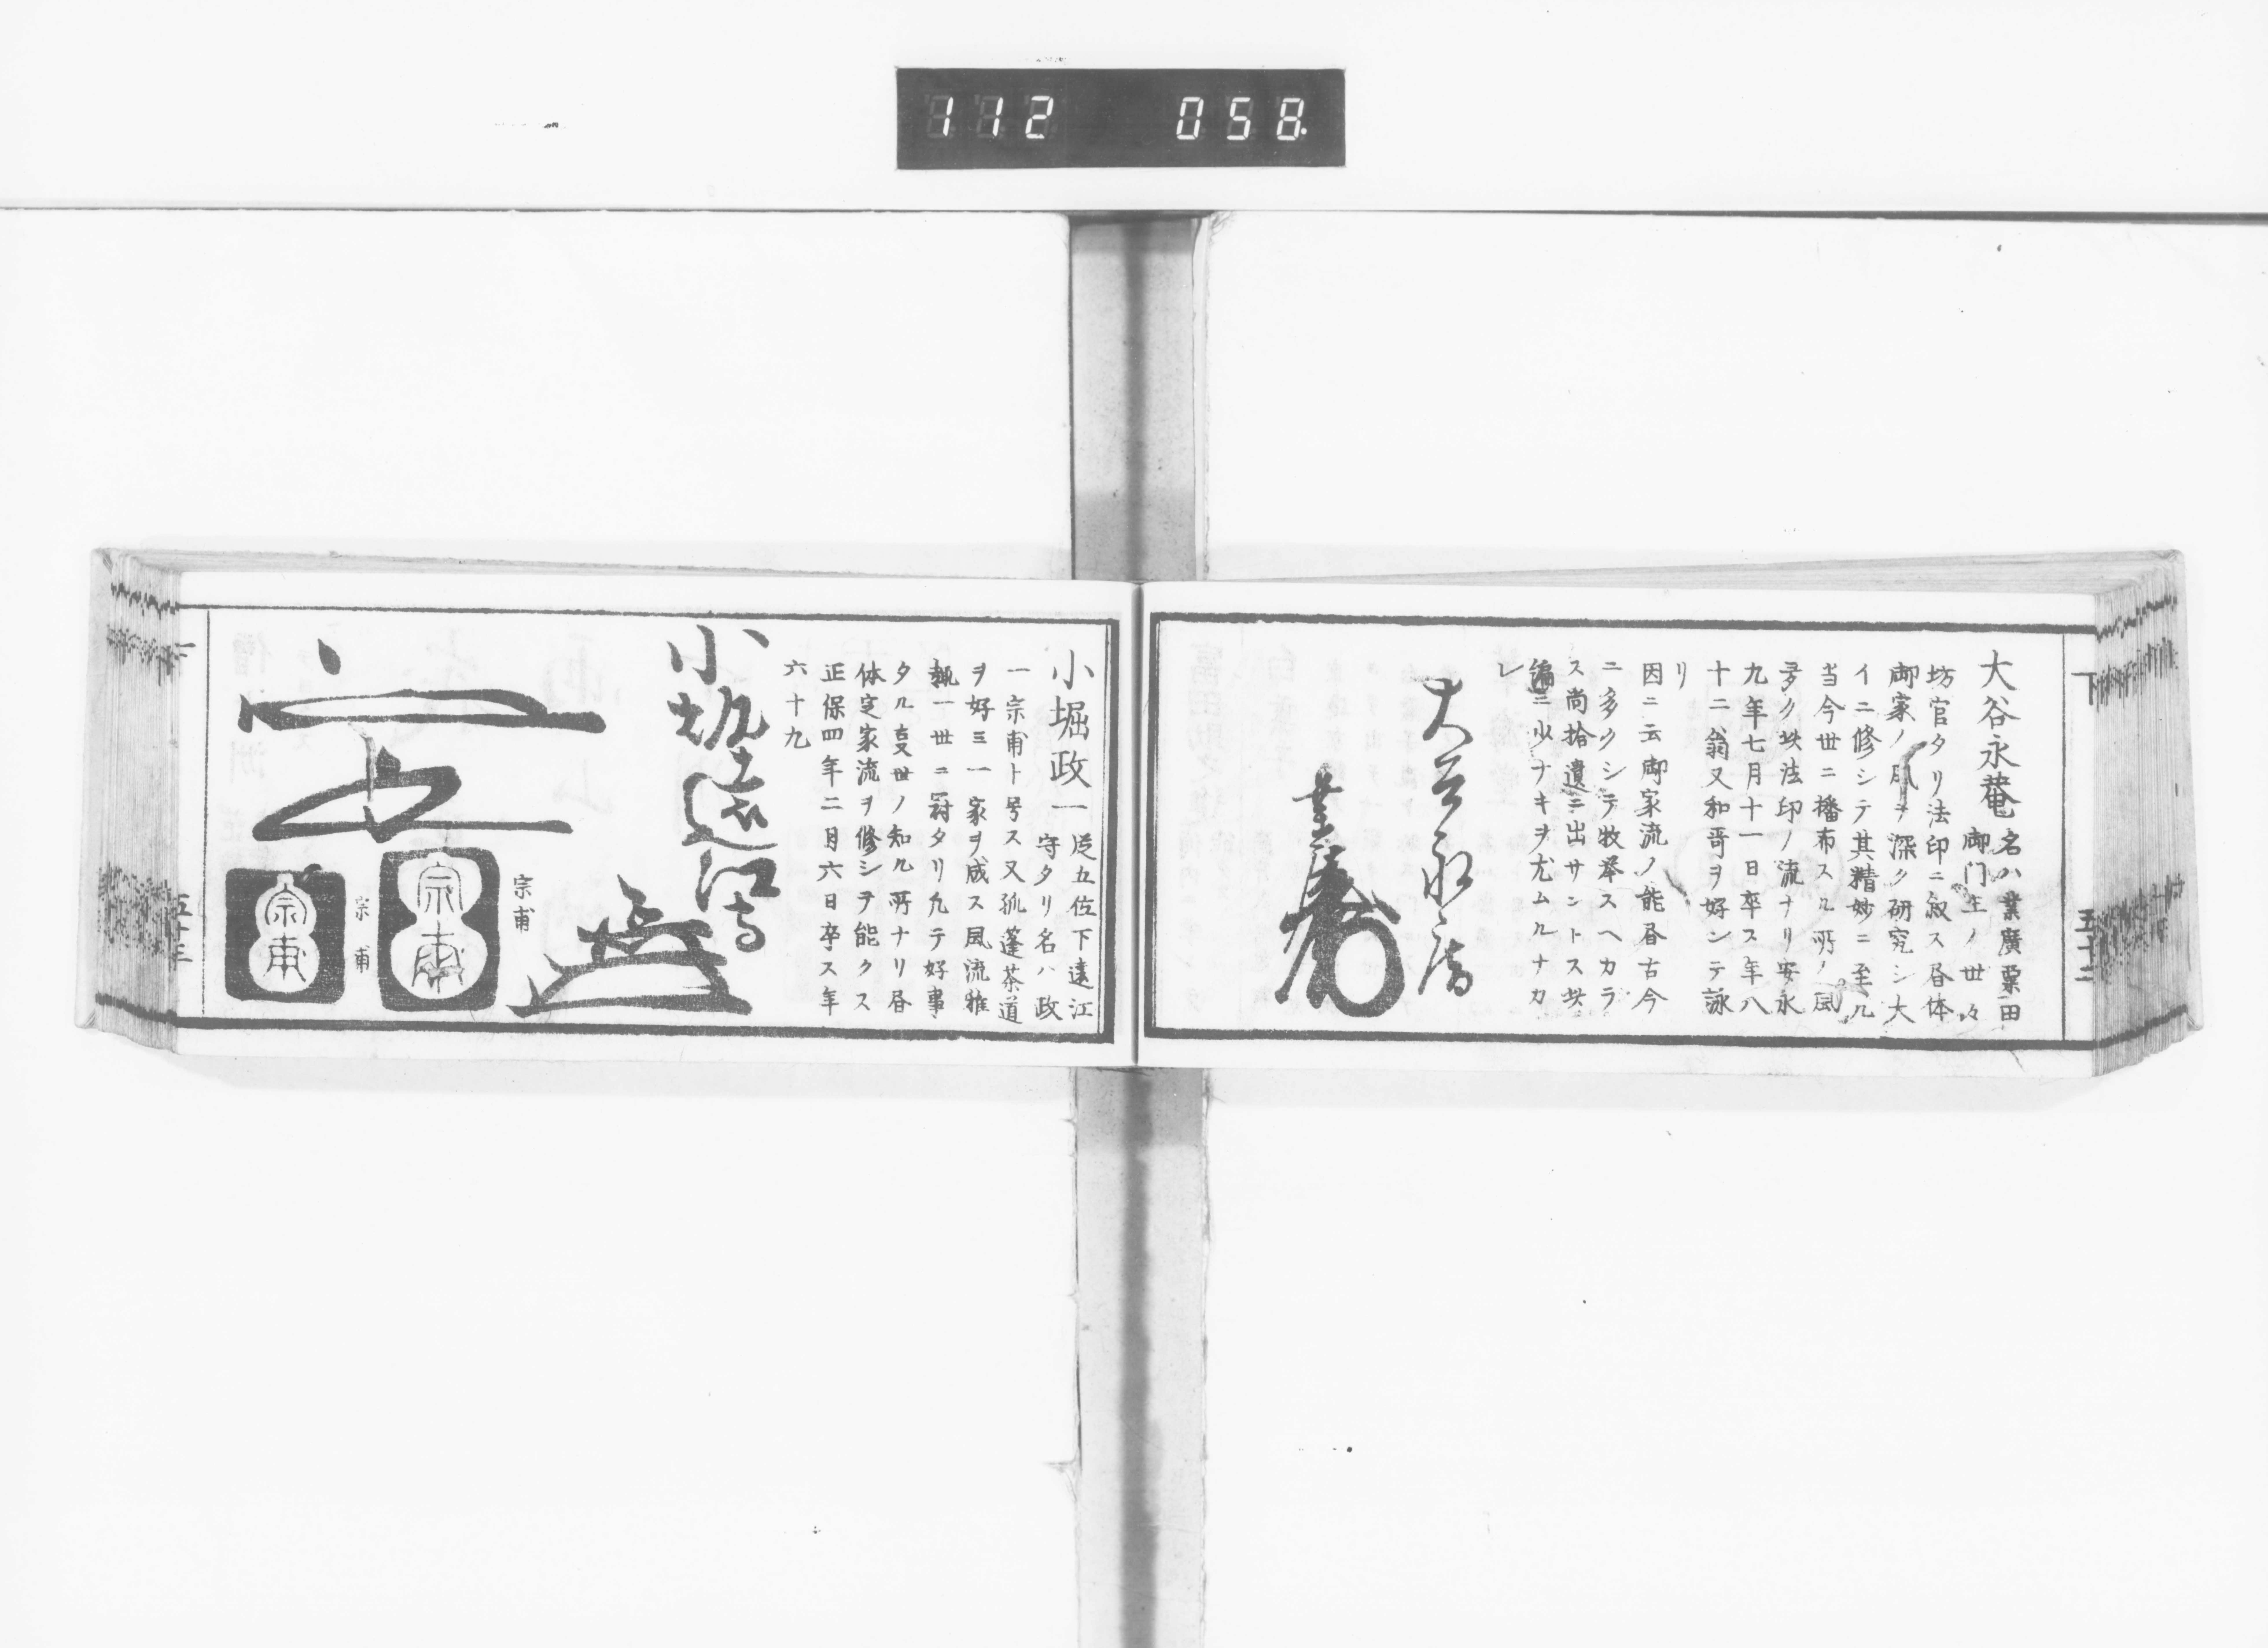 112 058
下
五十二
大谷永菴
名ハ業廣粟田
御门主ノ世々
坊官タリ法印ニ叙ス昏体
御家ノ風ヲ深ク研究シ大
イニ修シテ其精妙ニ至ル
当今世ニ播布スル所ノ風
多ク此法印ノ流ナリ安永
九年七月十一日卒ス年八
十二翁又和哥ヲ好ンテ詠
リ
因ニ云御家流ノ能昏古今
ニ多クシテ牧挙スヘカラ
ス尚拾遺ニ出サントス此
編ニ少ナキヲ尤ムルナカ
レ
大谷永庵
小堀政一
従五位下遠江
守タリ名ハ政
一宗甫ト号ス又孤蓬茶道
ヲ好三一家ヲ成ス風流雅
執一世ニ冠タリ凢テ好事
タル叓世ノ知ル所ナリ昏
体定家流ヲ修シヲ能クス
正保四年二月六日卒ス年
六十九
小堀遠江守
宗甫
宗甫
宗甫
宗甫
下
五十三